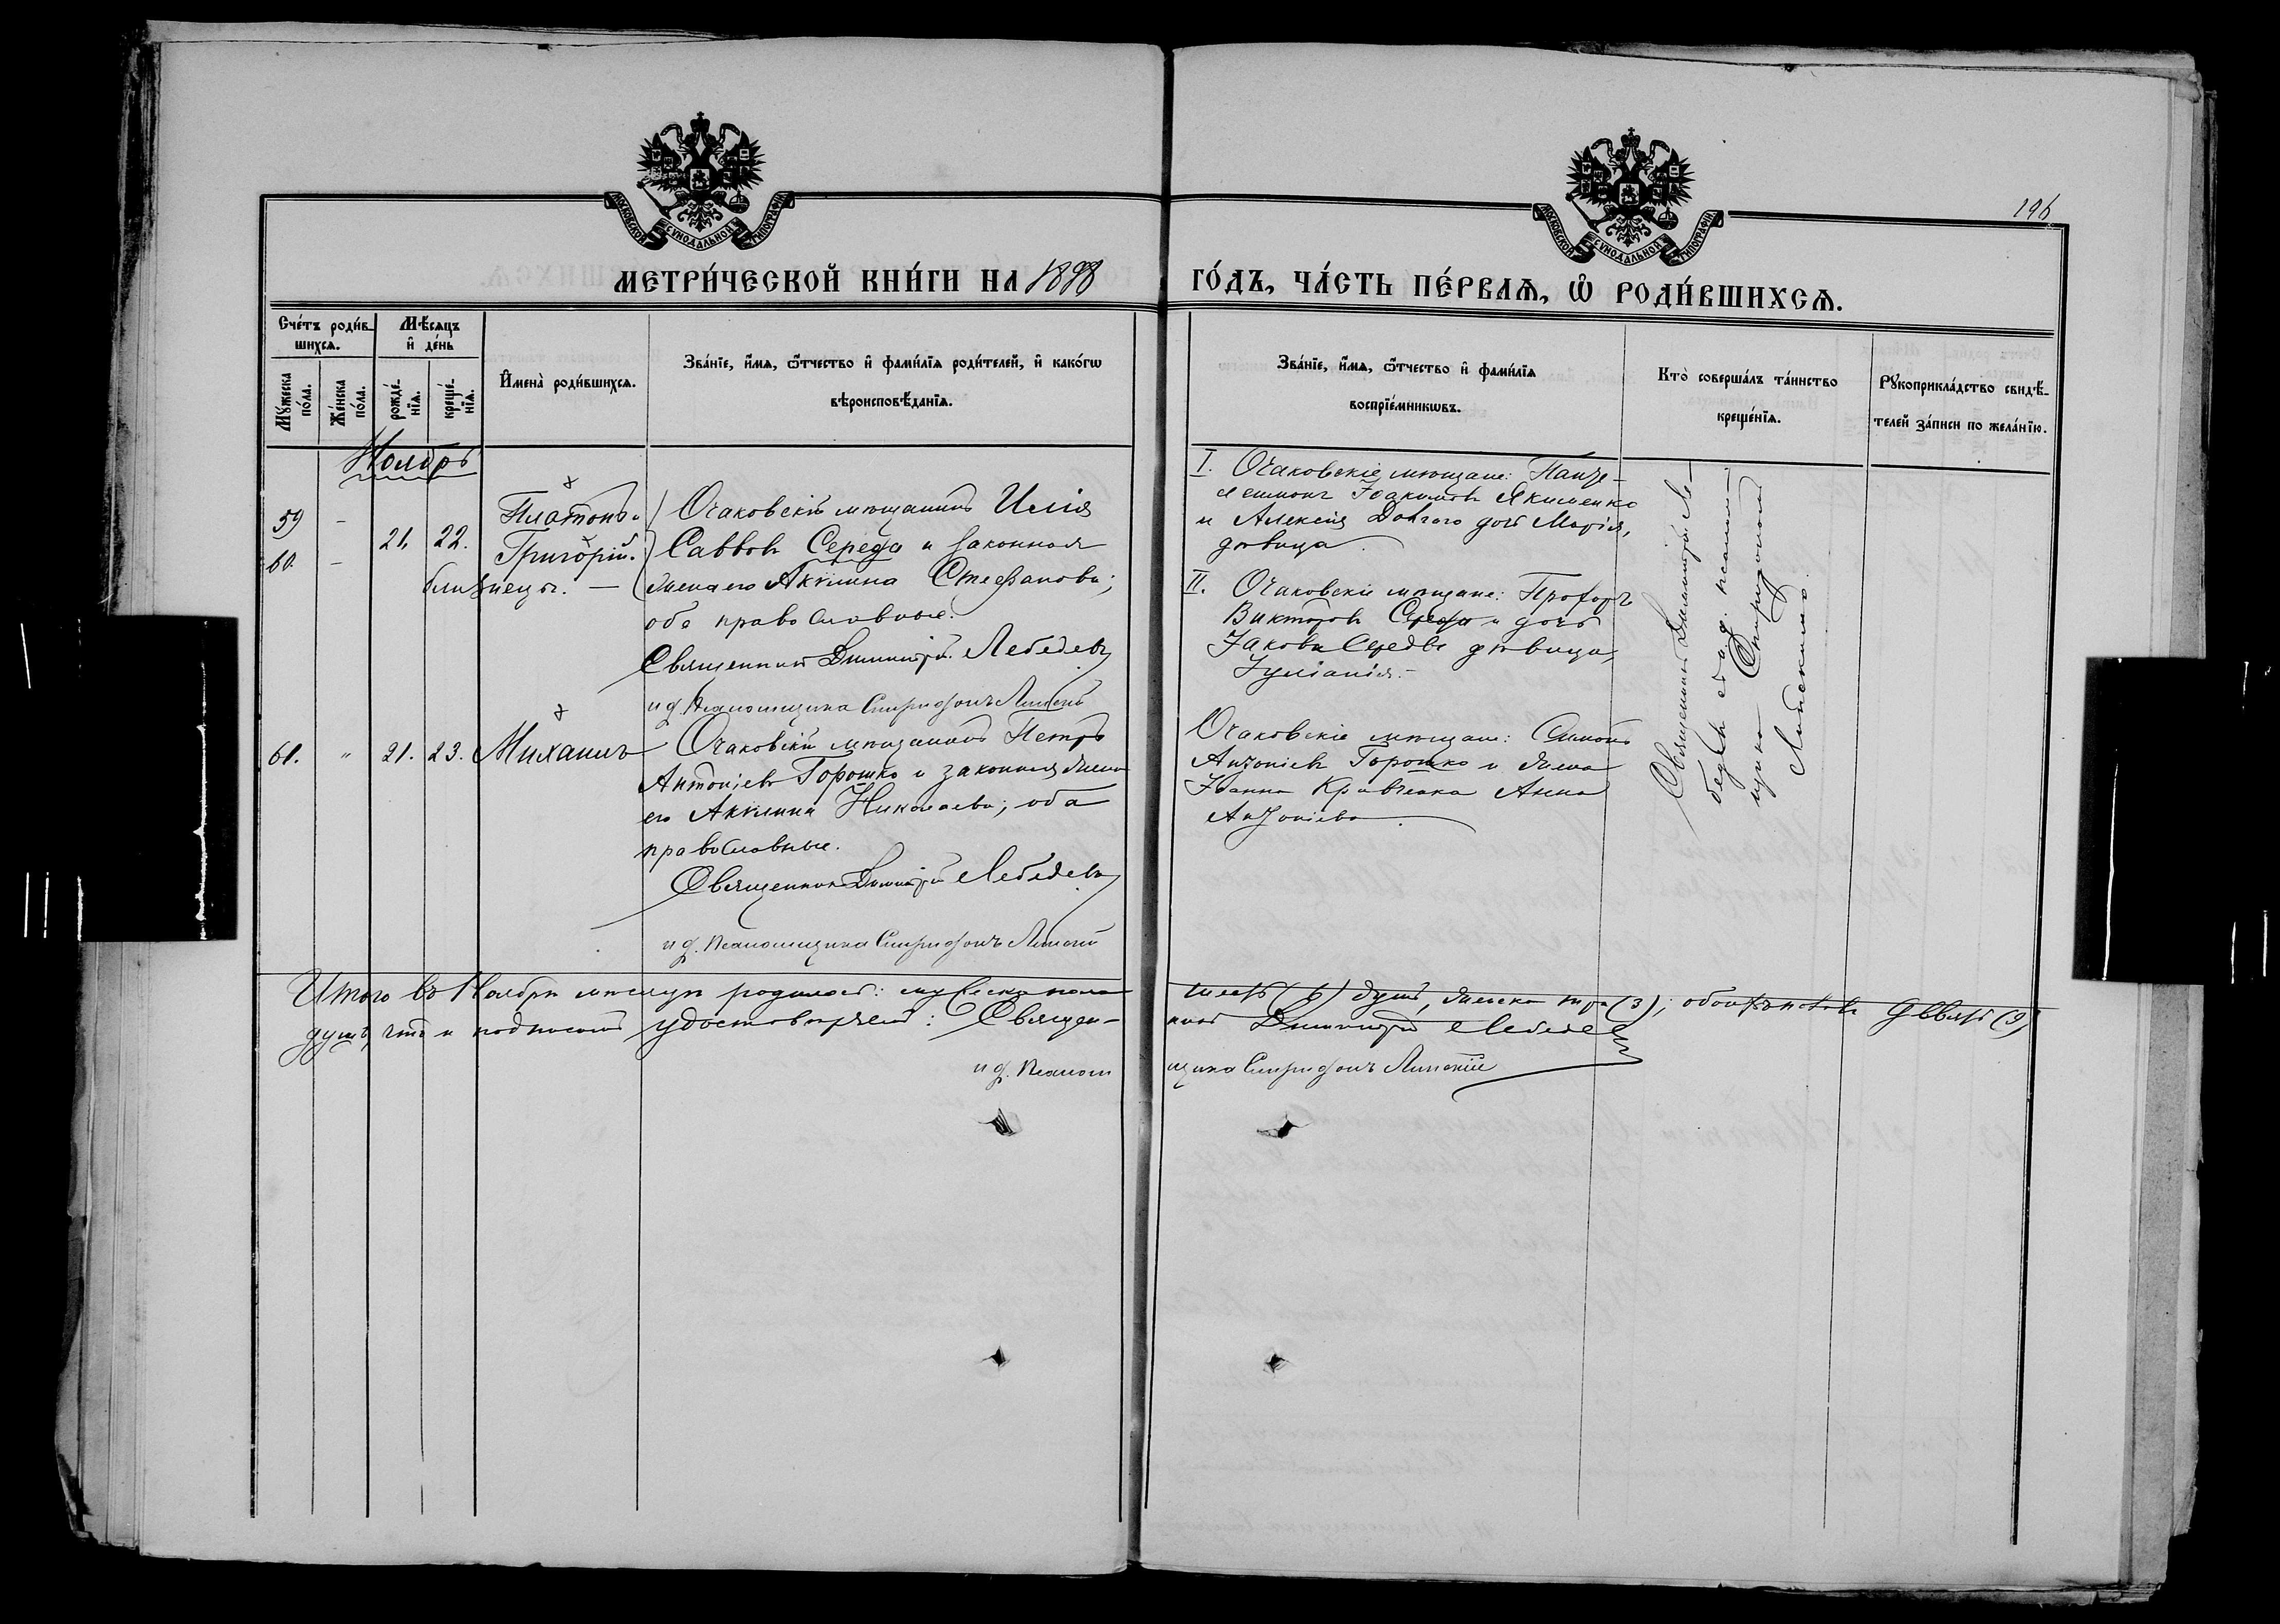 196
МОСКОВСКОЙ СУНОДАЛЬНОЙ ТИПОГРАФІИ
МОСКОВСКОЙ СУНОДАЛЬНОЙ ТИПОГРАФІИ
МЕТРИ́ЧЕСКОЙ КНИ́ГИ НА 1898
ГО́ДЪ, ЧА́СТЬ ПЕ́РВАѦ, Ѽ РОДИ́ВШИХСѦ.
Сче́тъ роди́в-
шихсѧ.
Мѣ́сѧцъ
и҆ де́нь
Мꙋ́жеска по́ла.
Же́нска по́ла.
рожде́-
нїѧ.
креще́-
нїѧ.
И҆мена̀ роди́вшихсѧ.
Зва́нїе, и҆́мѧ, ѻ҆́тчество и҆ фами́лїѧ роди́телей, и҆ како́гѡ
вѣроисповѣ́данїѧ.
Зва́нїе, и҆́мѧ, ѻ҆́тчество и҆ фами́лїѧ
воспрїе́мникѡвъ.
Кто̀ соверша́лъ та́инство
креще́нїѧ.
Рꙋкоприкла́дство свидѣ́-
телей за́писи по жела́нїю.
Ноябрь
59
60.
21. 22.
Платонъ и
Григорій.
близнецы. —
Очаковскій мѣщанинъ Илія
Саввовъ Середа и законная
жена его Акилина Стефанова;
оба православные.
Священникъ Димитрій Лебедевъ
и д. псаломщика Спиридонъ Липскій
I. Очаковскіе мѣщане: Панте-
леимонъ Іоакимовъ Якименко
и Алексія Долгого дочь Марія,
дѣвица.
II. Очаковскіе мѣщане: Прохоръ
Викторовъ Середа и дочь
Іакова Середы дѣвица,
Іуліанія.
Священникъ Димитрій Ле-
бедевъ съ и. д. псалом-
щика Спиридономъ
Липскимъ.
61. " 21. 23. Михаилъ
Очаковскій мѣщанинъ Петръ
Антоніевъ Горошко и законная жена
его Акилина Николаева; оба
православные.
Священникъ Димитрій Лебедевъ
и д. псаломщика Спиридонъ Липскій
Очаковскіе мѣщане: Симонъ
Антоніевъ Горошко и жена
Іоанна Кравченка Анна
Антоніева.
Итого въ Ноябрѣ мѣсяцѣ родилось: мужеска пола шесть (6) душъ, женска три (3); обоихъ половъ девять (9)
душъ, что и подписомъ удостовѣряемъ: Священ-никъ Димитрій Лебедевъ
и д. псаломщика Спиридонъ Липскій